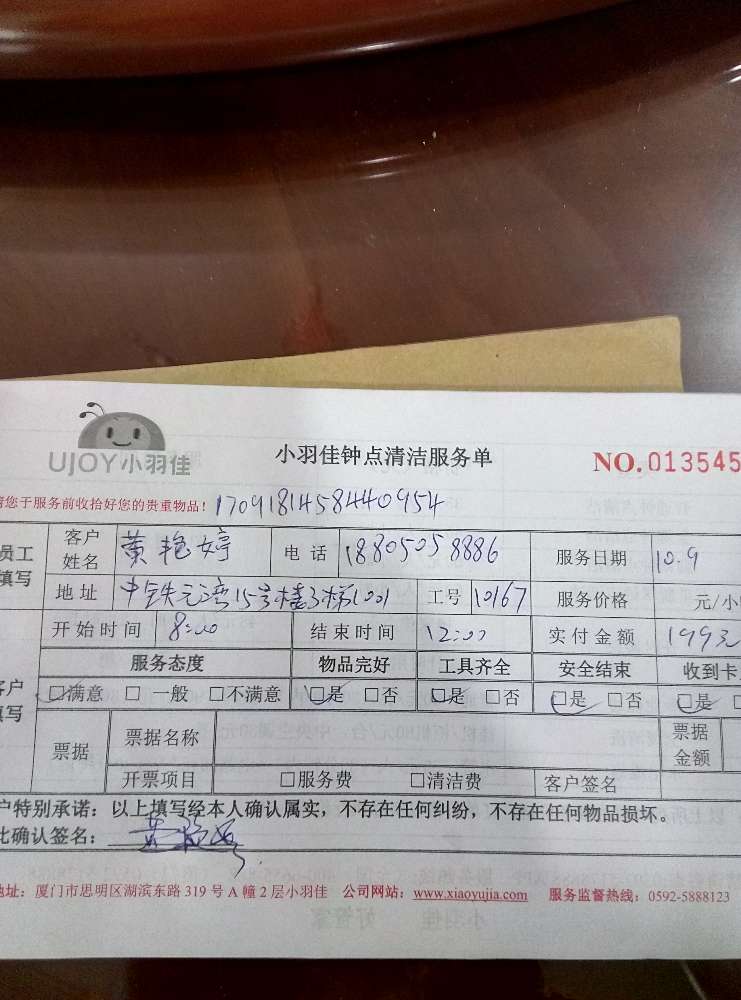 UJOY小羽佳
小羽佳钟点清洁服务单 NO.013545
请您于服务前收拾好您的贵重物品! 1709181458440954
员工填写 客户姓名 黄艳婷 电话 18805058886 服务日期 10.9
地址 中铁元湾15号楼3梯1001 工号 10167 服务价格 元/小
开始时间 8:00 结束时间 12:00 实付金额 199元
客户填写 服务态度 物品完好 工具齐全 安全结束 收到卡
□满意 □一般 □不满意 □是 □否 □是 □否 □是 □否 □是
票据 票据名称 票据金额
开票项目 □服务费 □清洁费 客户签名
户特别承诺:以上填写经本人确认属实,不存在任何纠纷,不存在任何物品损坏。
此确认签名:
地址:厦门市思明区湖滨东路 319 号 A 幢 2 层小羽佳 公司网站:www.xiaoyujia.com 服务监督热线:0592-5888123